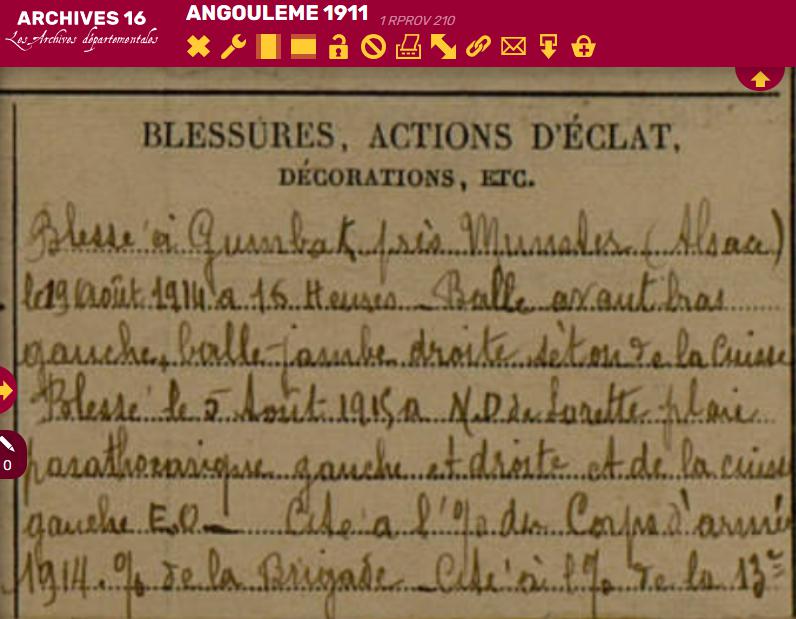 ARCHIVES 16
Les Archives départementales
ANGOULEME 1911 1 RPROV 210
BLESSURES, ACTIONS D'ÉCLAT,
DÉCORATIONS, ETC.
Blessé à Gumbak près Munster (Alsace)
le 19 Août 1914 a 16 Heures _ Balle avant bras
gauche, balle jambe droite séton de la Cuisse
Blessé le 5 Août 1915 a N.D de Lorette plaie
parathoracique gauche et droite et de la cuisse
gauche E.O _ Cité a l'% du Corps d'armée
1914. % de la Brigade _ Cité à l'% de la 13e
0